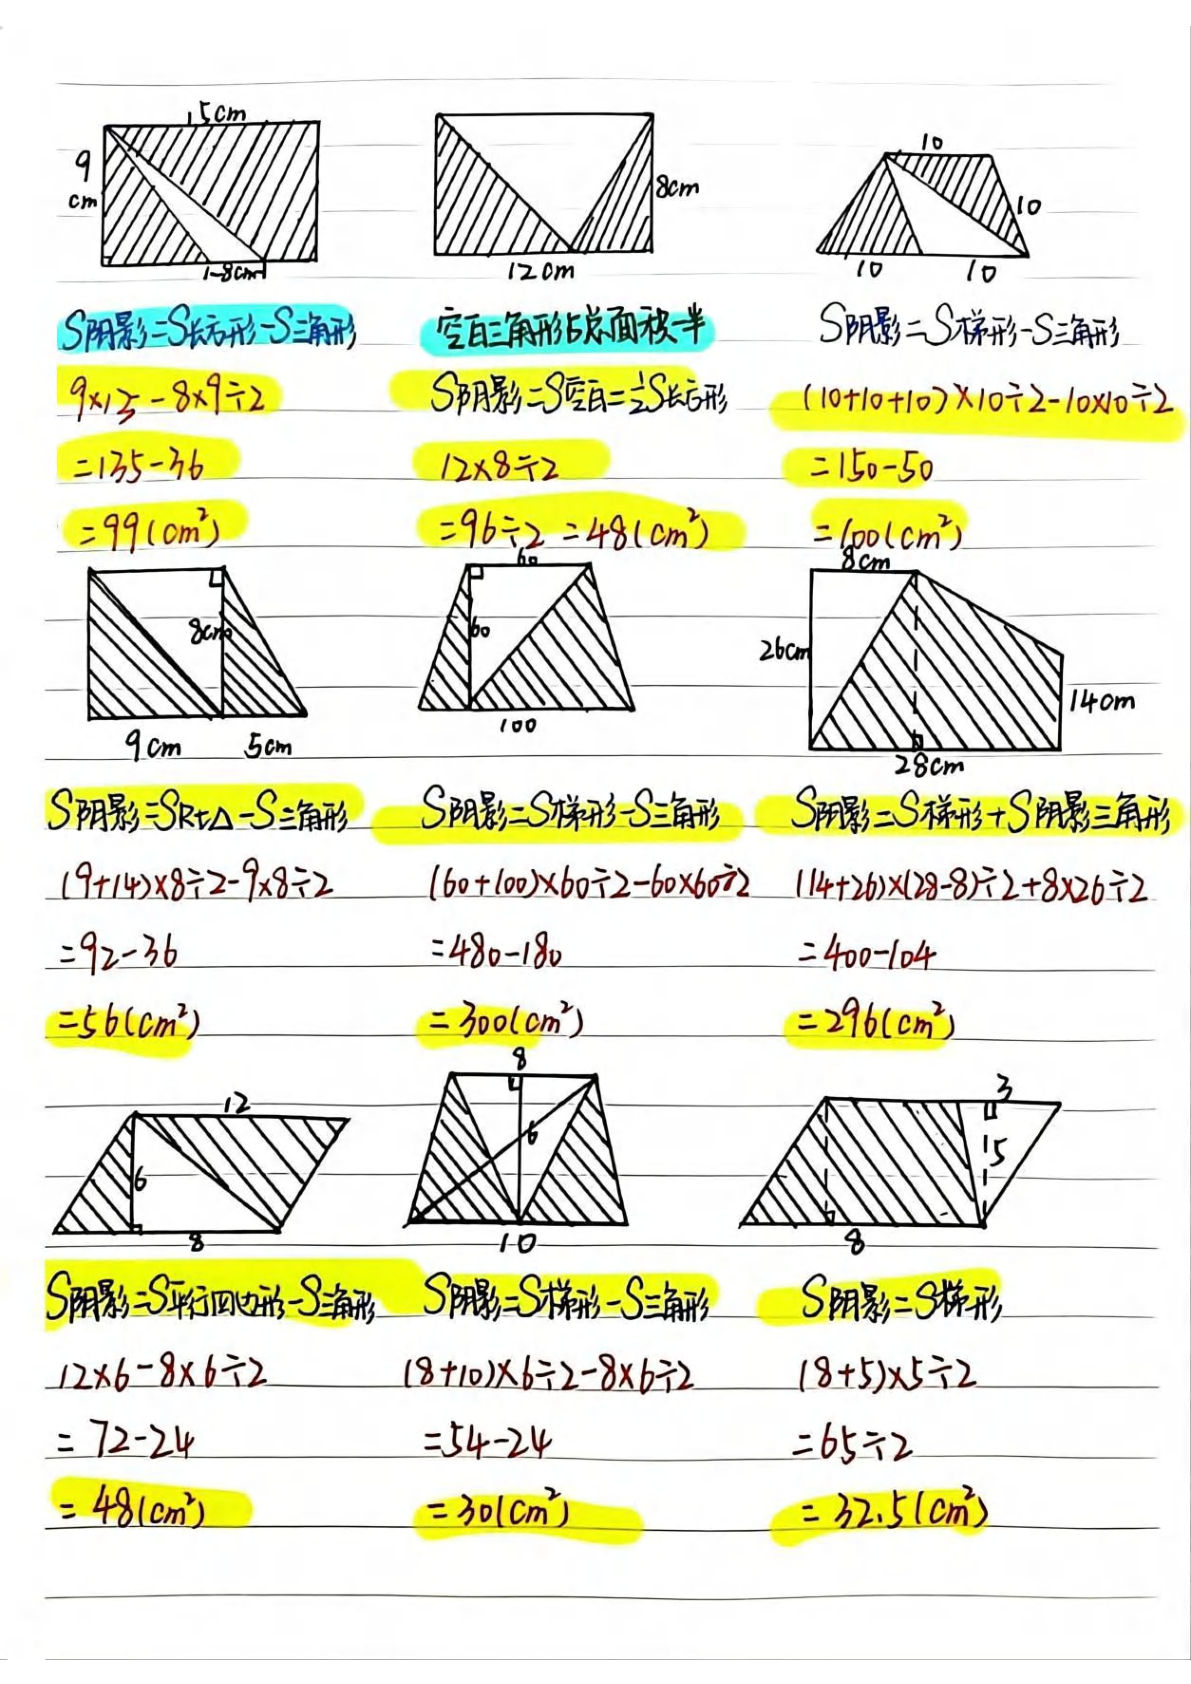 15cm
9
cm
8cm
12cm
8cm
10
10
10
10
S阴影=S长方形-S三角形
9×15-8×9÷2
=135-36
=99(cm²)
空白三角形占总面积一半
S阴影=S空白=½S长方形
12×8÷2
=96÷2=48(cm²)
S阴影=S梯形-S三角形
(10+10+10)×10÷2-10×10÷2
=150-50
=100(cm²)
8cm
9cm
5cm
60
60
100
8cm
26cm
14cm
28cm
S阴影=SRt△-S三角形
(9+14)×8÷2-9×8÷2
=92-36
=56(cm²)
S阴影=S梯形-S三角形
(60+100)×60÷2-60×60÷2
=480-180
=300(cm²)
S阴影=S梯形+S阴影三角形
(14+26)×(28-8)÷2+8×26÷2
=400-104
=296(cm²)
12
6
8
8
6
10
3
5
8
S阴影=S平行四边形-S三角形
12×6-8×6÷2
=72-24
=48(cm²)
S阴影=S梯形-S三角形
(8+10)×6÷2-8×6÷2
=54-24
=30(cm²)
S阴影=S梯形
(8+5)×5÷2
=65÷2
=32.5(cm²)